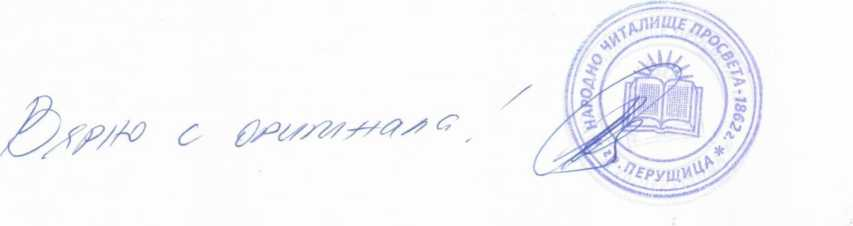 Вярно с оригинала!
НАРОДНО ЧИТАЛИЩЕ ПРОСВЕТА-1862г. * гр. ПЕРУЩИЦА *